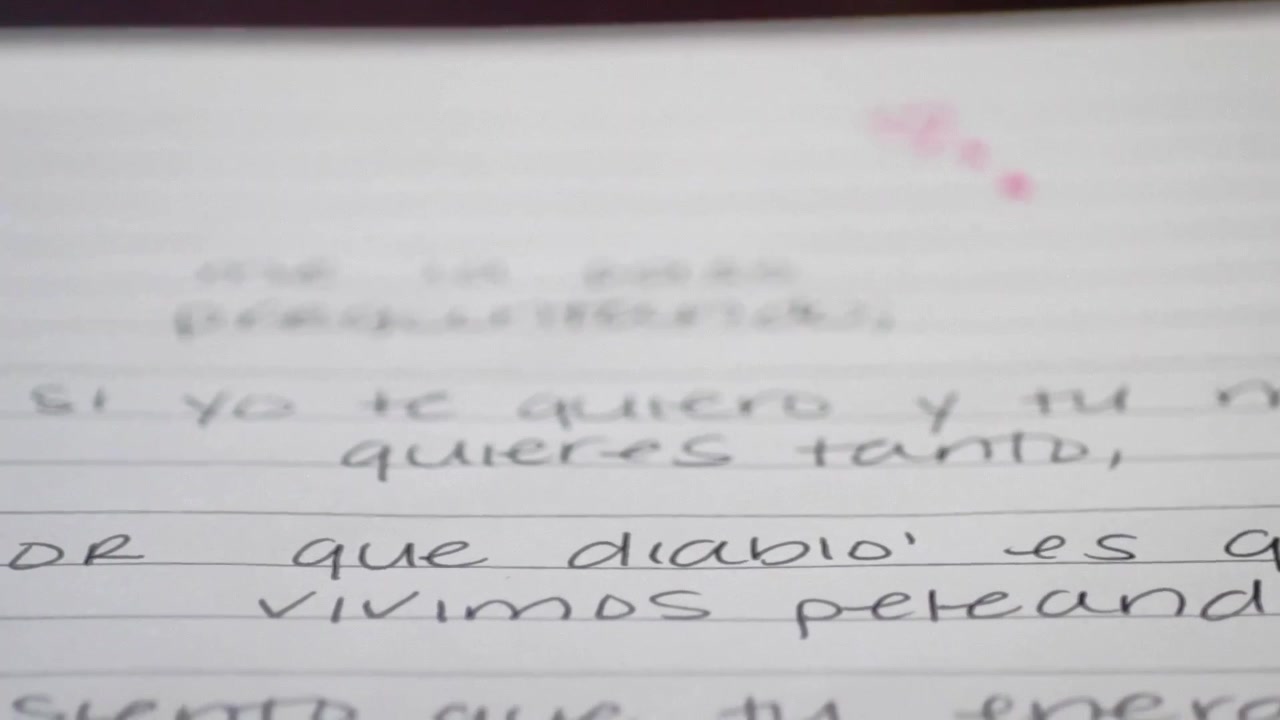 si yo te quiero y tu m
quieres tanto,
OR que diablo' es q
vivimos peleand
siento que tu energ